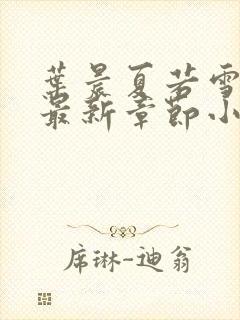 葉晨夏若雪
最新章節小
席琳-迪翁